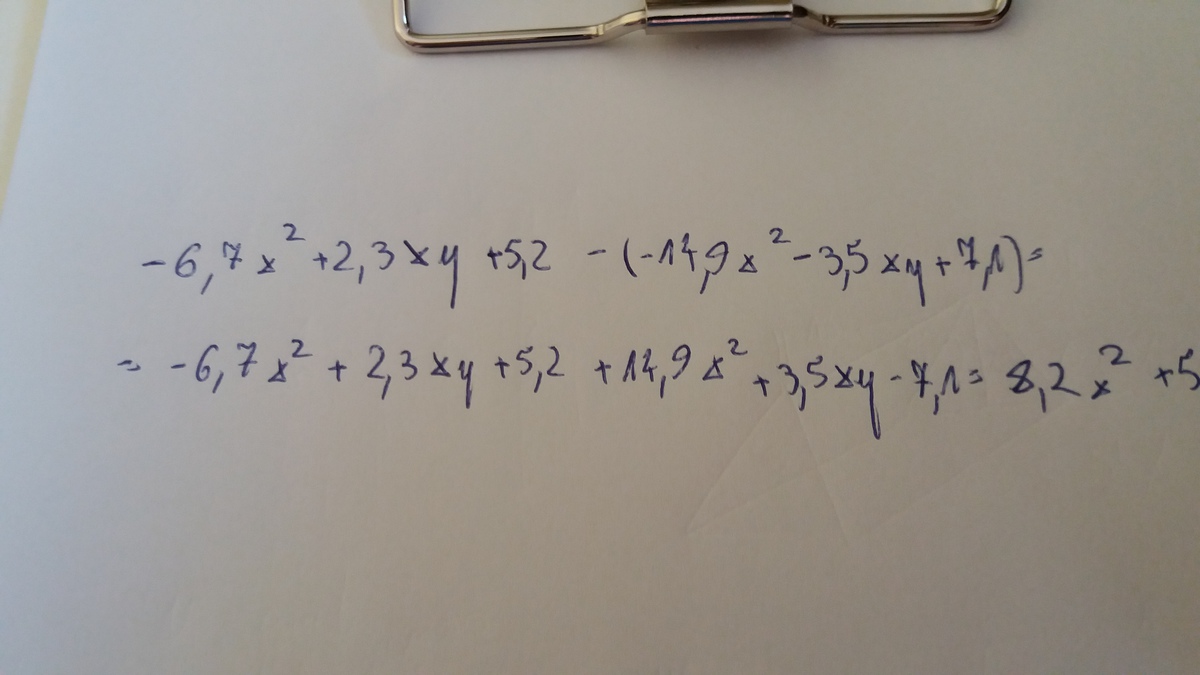 -6,7x² +2,3xy +5,2 -(-14,9x² -3,5xy+7,1)=
= -6,7x² + 2,3xy +5,2 +14,9x² +3,5xy -7,1= 8,2x² +5